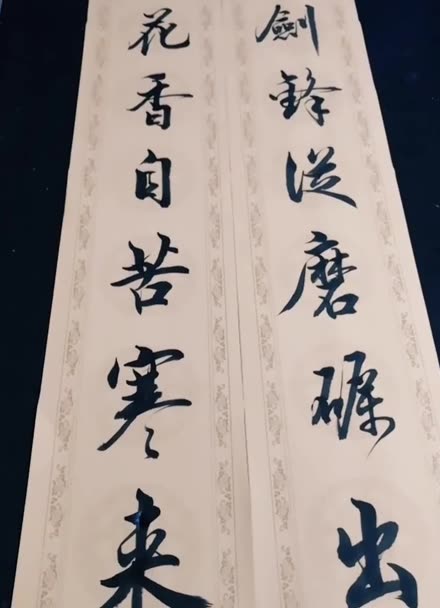 劍鋒從磨礪出
花香自苦寒来